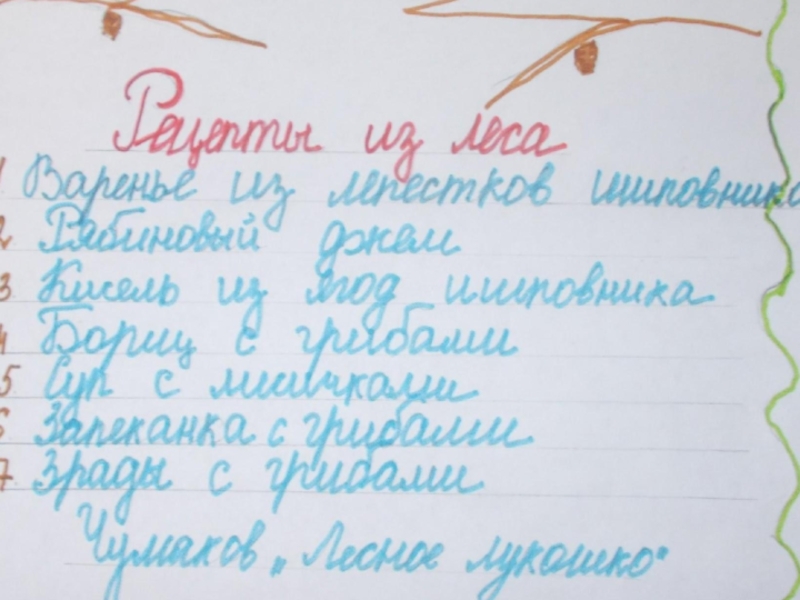 Рецепты из леса
1 Варенье из лепестков шиповника
2 Рябиновый джем
3 Кисель из ягод шиповника
4 Борщ с грибами
5 Суп с лисичками
6 Запеканка с грибами
7 Зразы с грибами
Чумаков „Лесное лукошко"